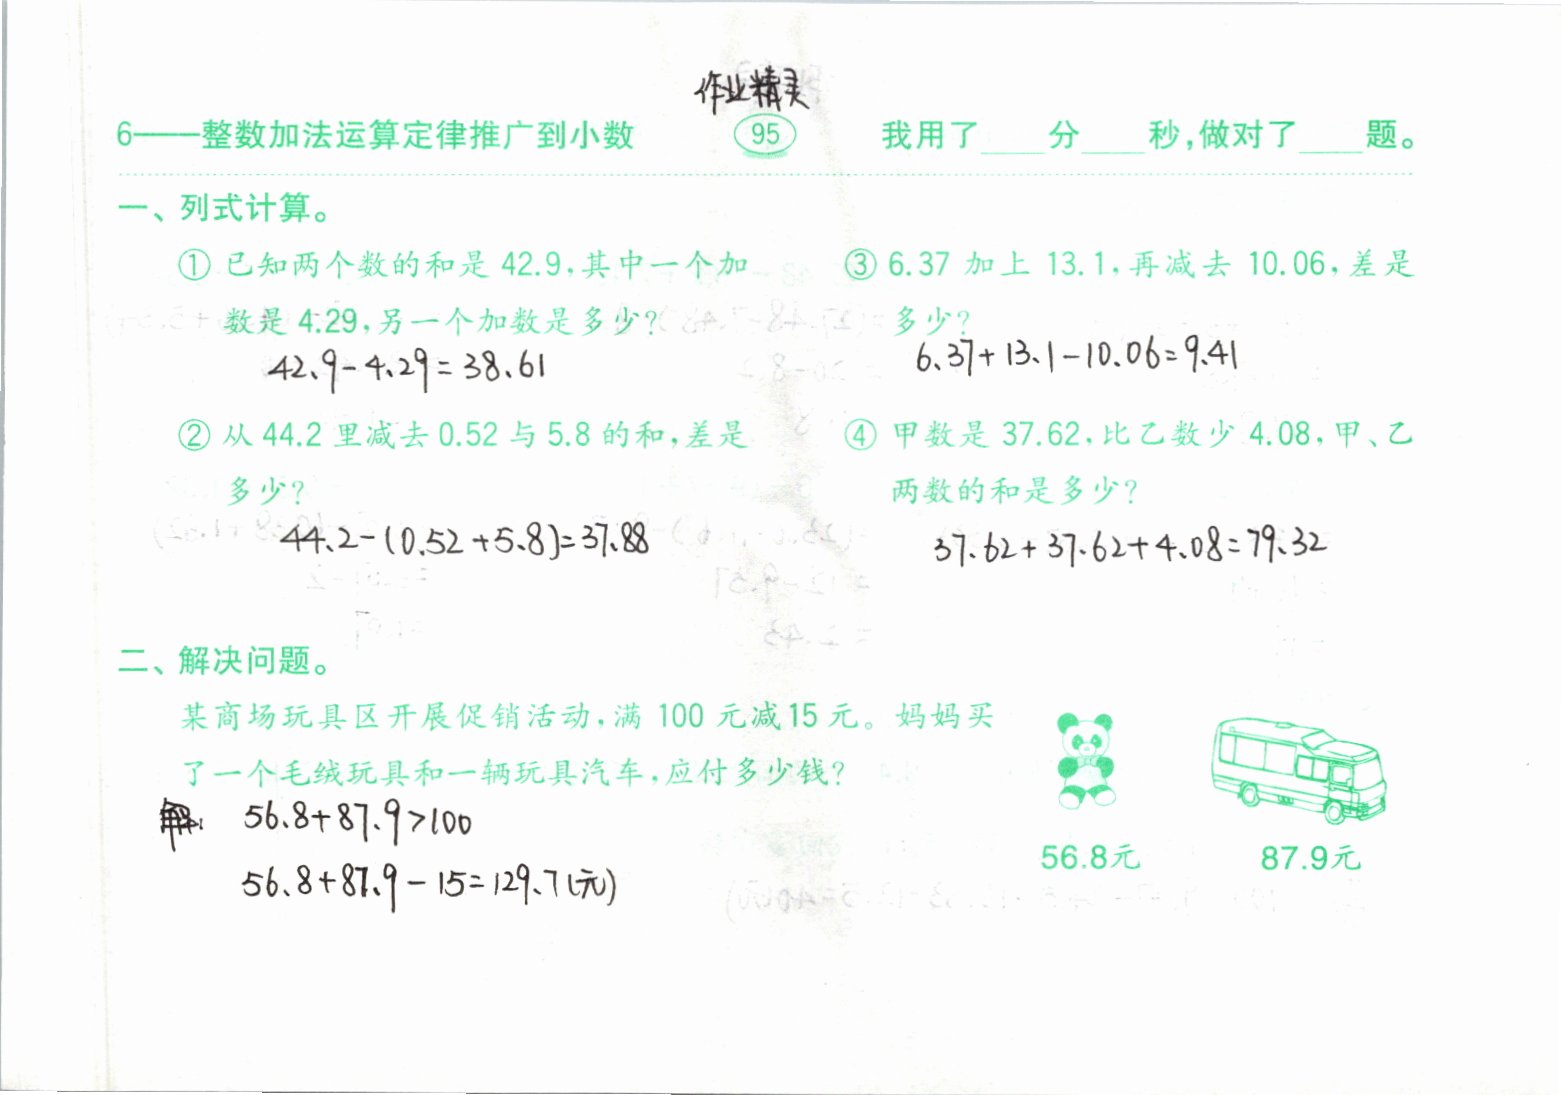 作业精灵
6——整数加法运算定律推广到小数 95 我用了____分____秒,做对了____题。
一、列式计算。
① 已知两个数的和是 42.9,其中一个加
数是 4.29,另一个加数是多少?
42.9-4.29=38.61
② 从 44.2 里减去 0.52 与 5.8 的和,差是
多少?
44.2-(0.52+5.8)=37.88
③ 6.37 加上 13.1,再减去 10.06,差是
多少?
6.37+13.1-10.06=9.41
④ 甲数是 37.62,比乙数少 4.08,甲、乙
两数的和是多少?
37.62+37.62+4.08=79.32
二、解决问题。
某商场玩具区开展促销活动,满 100 元减15元。妈妈买
了一个毛绒玩具和一辆玩具汽车,应付多少钱?
56.8元 87.9元
解:
56.8+87.9>100
56.8+87.9-15=129.7(元)